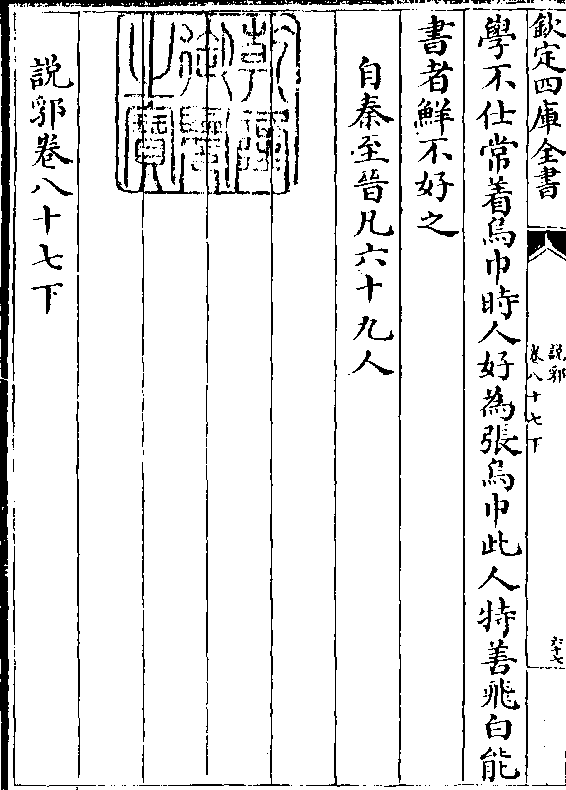 欽定四庫全書
說郛
卷八十七下
六十七
學不仕常着烏巾時人好為張烏巾此人特善飛白能
書者鮮不好之
自秦至晉凡六十九人
乾隆御覽之寶
說郛卷八十七下